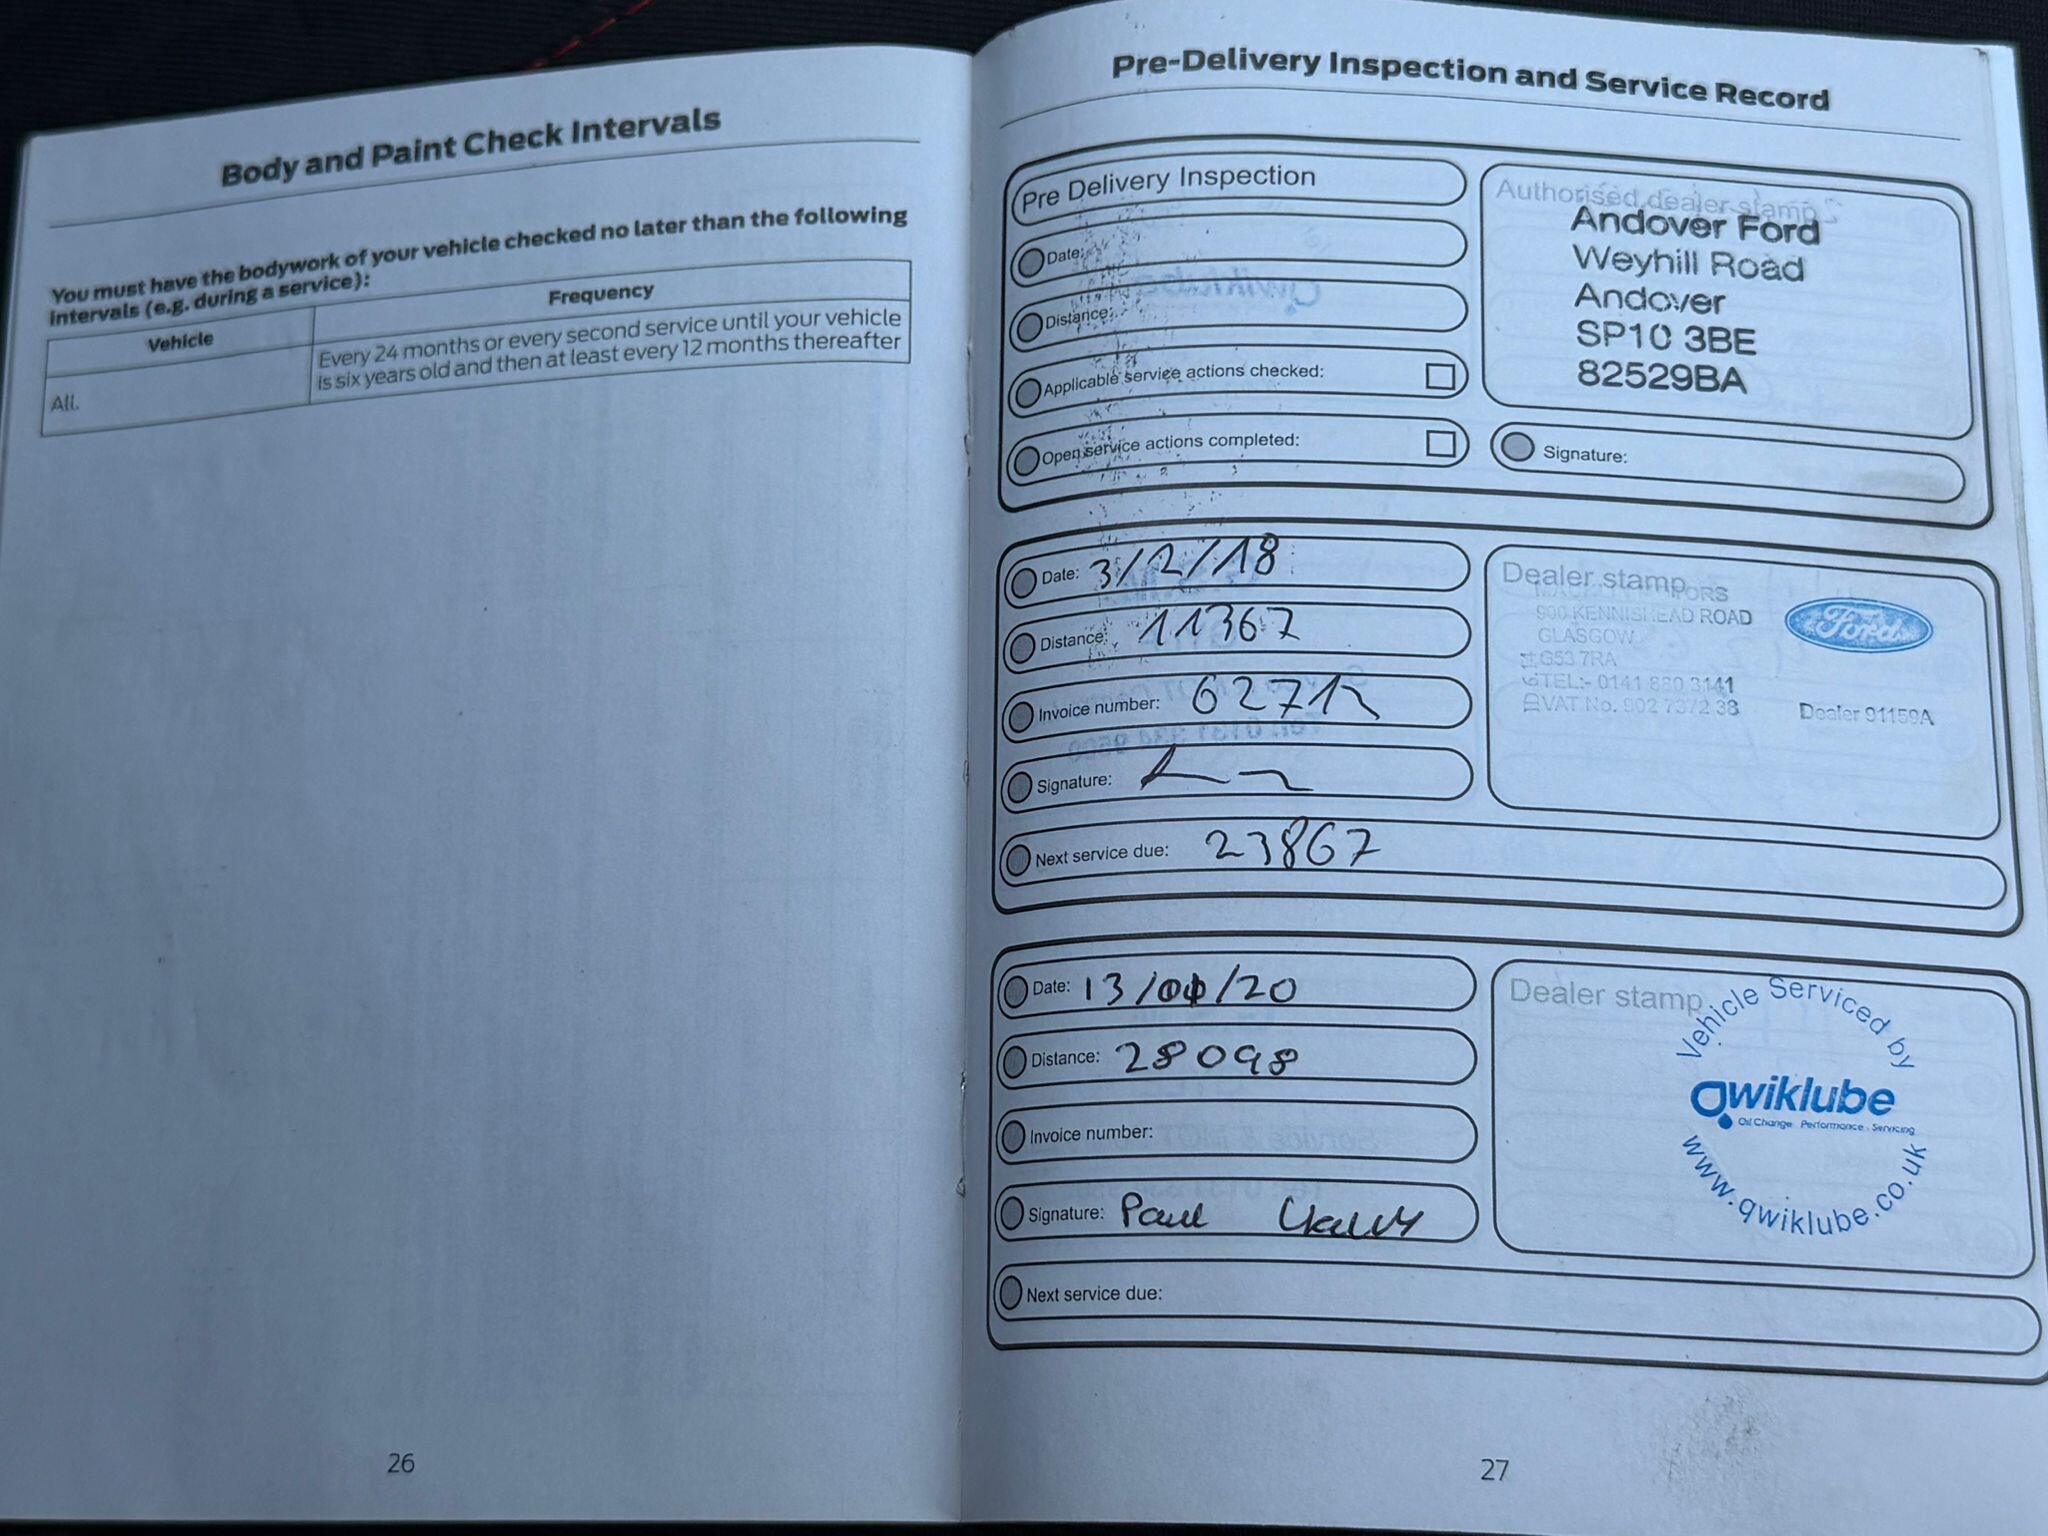 Body and Paint Check Intervals
You must have the bodywork of your vehicle checked no later than the following
intervals (e.g. during a service):
Vehicle
Frequency
All.
Every 24 months or every second service until your vehicle
is six years old and then at least every 12 months thereafter
26
Pre-Delivery Inspection and Service Record
Pre Delivery Inspection
Date:
Distance:
Applicable service actions checked:
Open service actions completed:
Authorised dealer stamp
Andover Ford
Weyhill Road
Andover
SP10 3BE
82529BA
Signature:
Date: 3/2/18
Distance: 11367
Invoice number: 6271
Signature:
Next service due: 23867
Dealer stamp
900 KENNISHEAD ROAD
GLASGOW
G53 7RA
TEL:- 0141 880 3141
VAT No. 902 7372 38
Ford
Dealer 91159A
Date: 13/01/20
Distance: 28098
Invoice number:
Signature: Paul
Next service due:
Dealer stamp
Vehicle Serviced by
qwiklube
Oil Change Performance Servicing
www.qwiklube.co.uk
27